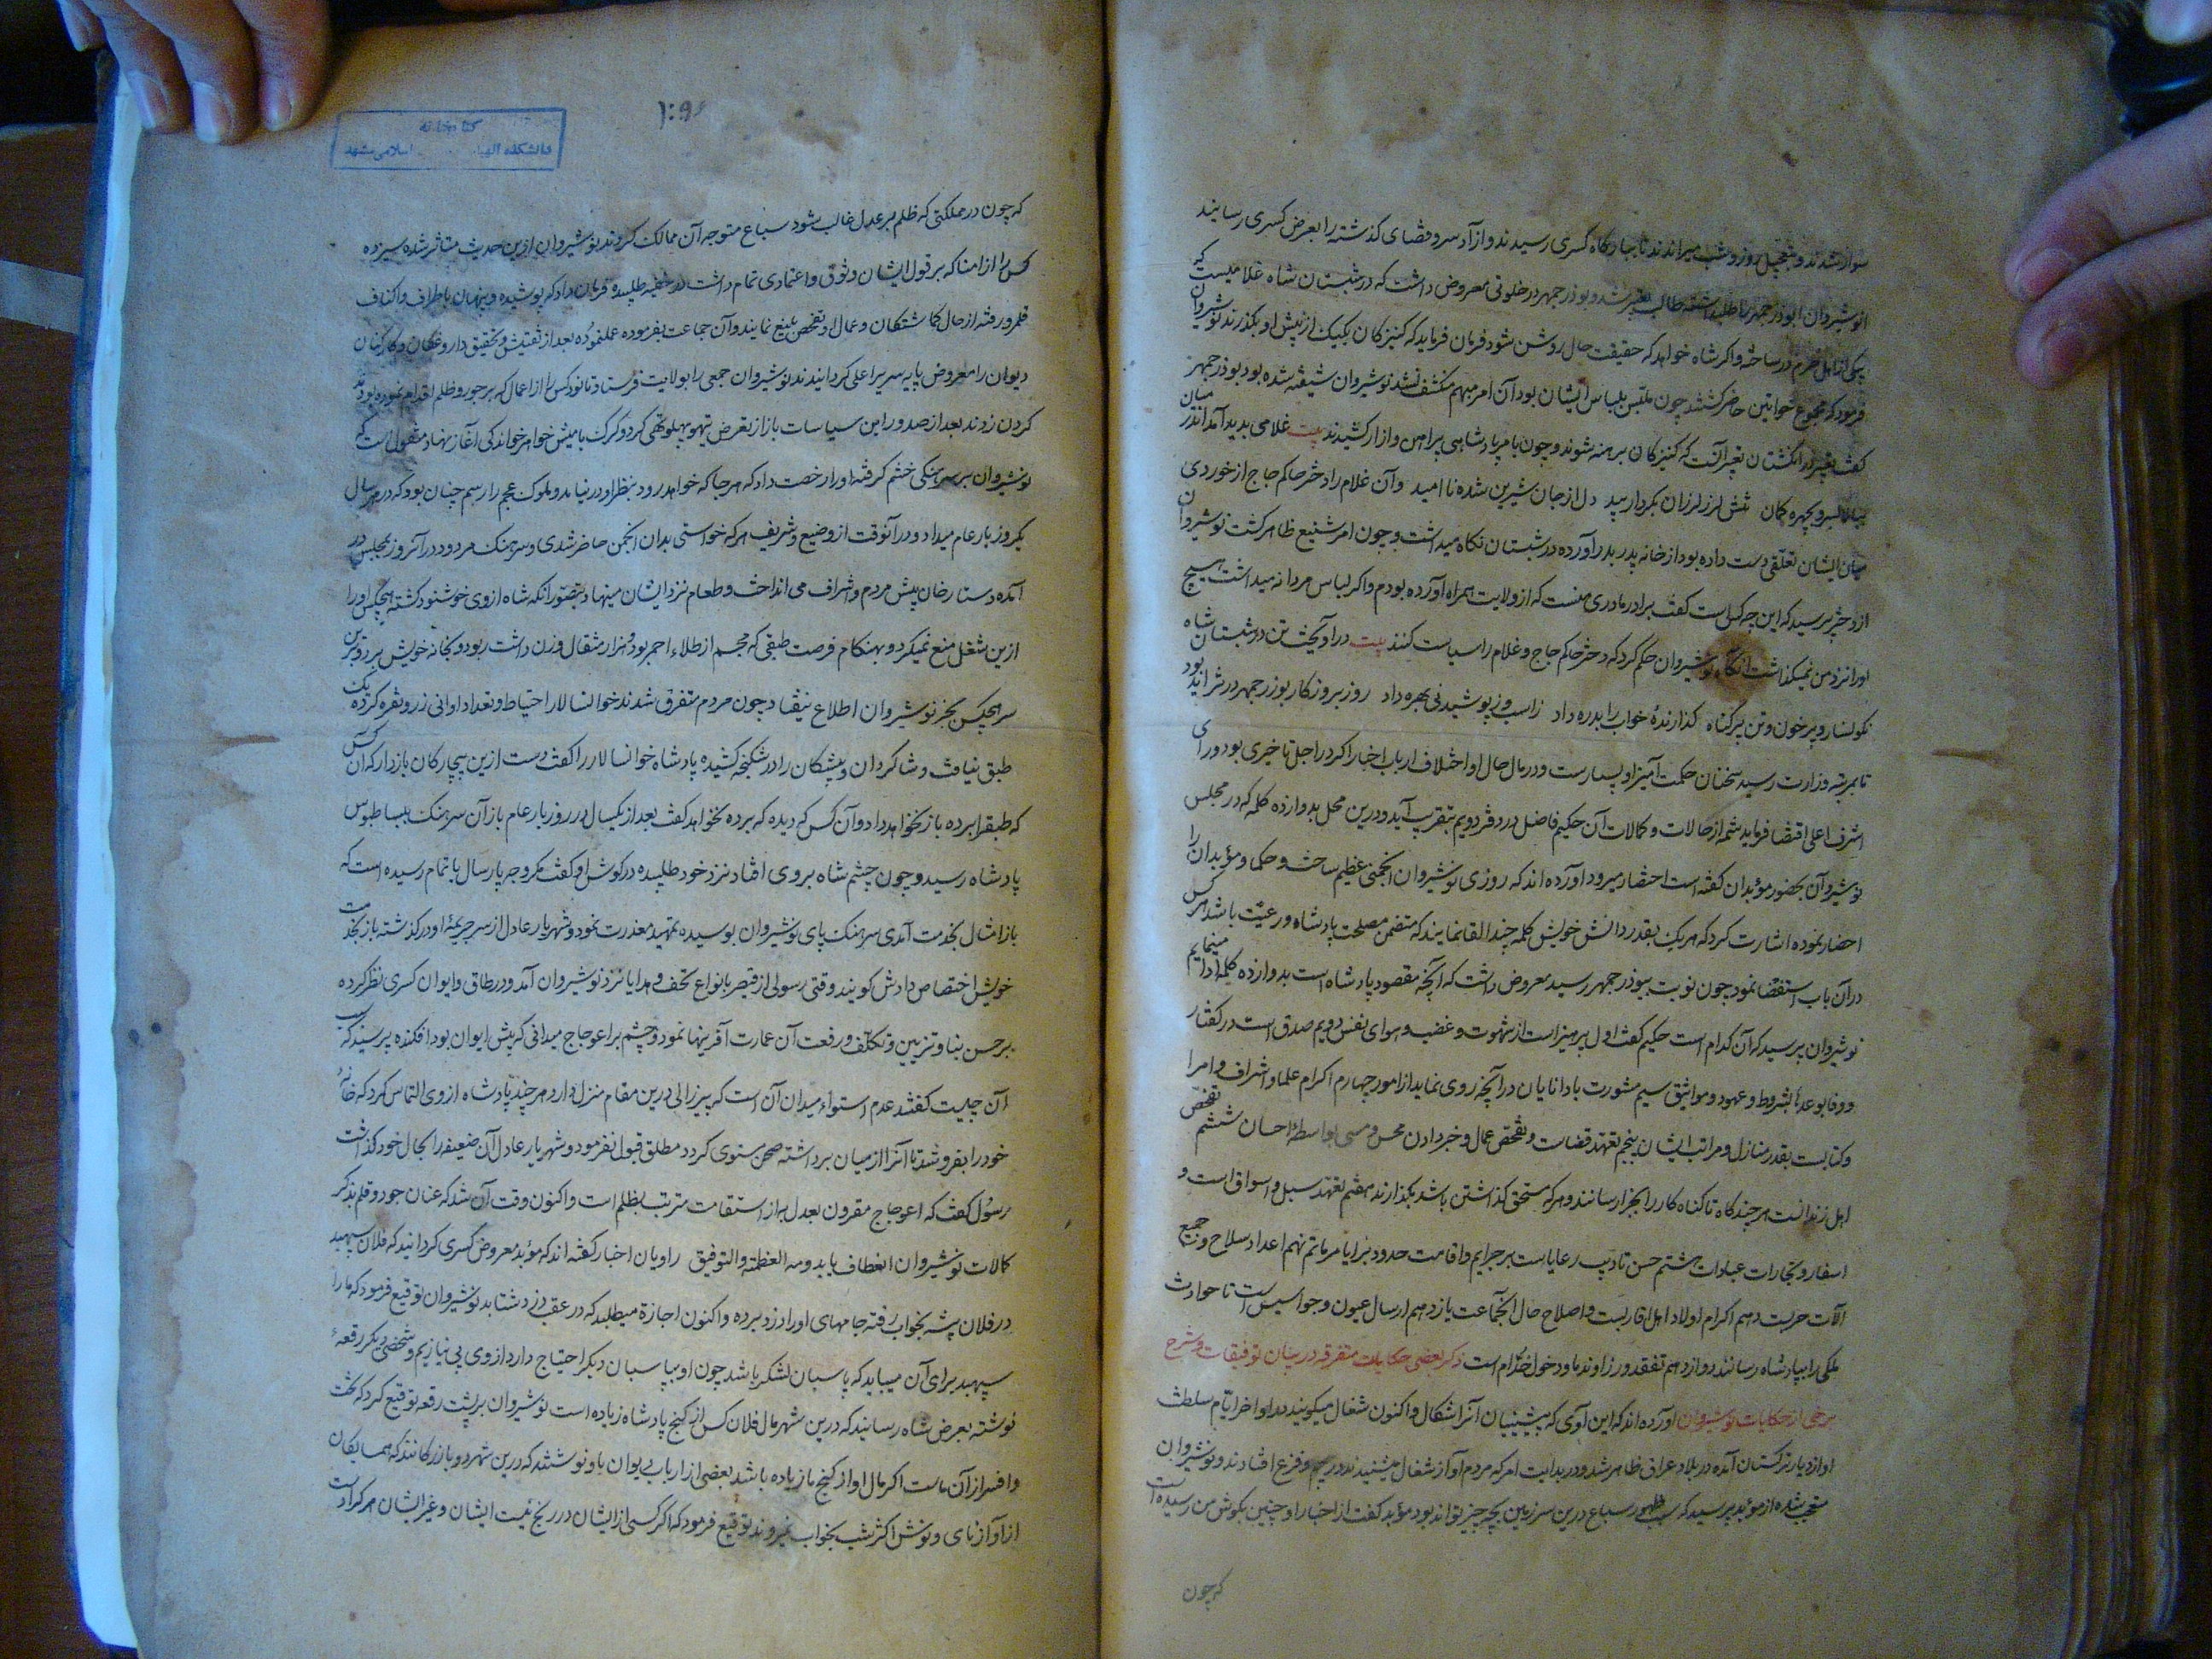 سوار شدند و بتعجیل روز و شب میراندند تا ببارکاه کسری رسیدند و از آمد سر و قضای کذشته را بعرض کسری رسانیدند
انوشیروان ابوذرجمهر را طلب داشته طالب تعبیر شد و بوذرجمهر در خلوتی معروض داشت که در شبستان شاه غلامیست که
یکی از اهل حرم در ساخته و اکر شاه خواهد که حقیقت حال روشن شود فرمان فرماید که کنیزکان یکیک از پیش او بکذرند نوشیروان
فرمود که مجموع خواتین حاضر کشتند چون ملتبس بلباس ایشان بود آن امر مبهم منکشف نشد نوشیروان شیفته شده بود بوذرجمهر
کفت تعبیر آنست که کنیزکان برهنه شوند و چون بامر پادشاهی پیراهن و ازار کشیدند بیت غلامی بدید آمد اندر میان
ببالای سرو بچهره کمان تنش لرز لرزان بکردار بید دل از جان شیرین شده نا امید و آن غلام را دختر حاکم جاج از خوردی
میان ایشان تعلقی دست داده بود از خانه پدر بدر آورده در شبستان نکاه میداشت و چون امر شنیع ظاهر کشت نوشیروان
از دختر پرسید که این چه کس است کفت برادر مادری منست که از ولایت همراه آورده بودم و اکر لباس مردانه میداشت هیچ
او را نزد من نمیکذاشت آنکاه نوشیروان حکم کرد که دختر حاکم جاج و غلام را سیاست کنند بیت در آویخت تن در شبستان شاه
نکونسار و پر خون و تن پر کناه کذارندۀ خواب را بدره داد ز اسب و ز پوشیدنی بهره داد روز بروز کار بوزرجمهر در تزاید بود
تا بمرتبه وزارت رسید سخنان حکمت آمیز او بسیارست و در مال حال او اختلاف ارباب اخبار اکر در اجل تاخیری بود و رای
اشرف اعلی اقتضا فرماید شمه از حالات و کمالات آن حکیم فاضل در دفتر دویم بتقریب آید و درین محل بدوازده کلمه که در مجلس
نوشیروان بحضور موبدان کفته است اختصار میرود آورده اند که روزی نوشیروان انجمنی عظیم ساخت و حکما و موبدان را
احضار نموده اشارت کرد که هر یک بقدر دانش خویش کلمه چند القا نمایند که متضمن مصلحت پادشاه و رعیت باشد هر کس
در آن باب استقصا نمود چون نوبت ببوذرجمهر رسید معروض داشت که آنچه مقصود پادشاه است بدوازده کلمه ادا مینمایم
نوشیروان پرسید که آن کدام است حکیم کفت اول پرهیز است از شهوت و غضب و هوای نفس دویم صدق است در کفتار
و وفا بوعد بشروط و عهود و مواثیق سیم مشورت با دانایان در آنچه روی نماید از امور چهارم اکرام علما و اشراف و امرا
و کتابست بقدر منازل و مراتب ایشان پنجم تعهد قضات و تفحص عمال و خبر دادن محسن و مسی بواسطۀ احسان ششم تفحص
اهل زندانست هر چند کاه تا کناه کار را بجزا رسانند و هر که مستحق کذاشتن باشد بکذارند هفتم تعهد سبل و اسواق است و
اسفار و تجارات عبادات هشتم حسن تادیب رعایاست بر جرایم و اقامت حدود نهم اعداد سلاح و جمیع
آلات حربست دهم اکرام اولاد اهل اقاربست و اصلاح حال آنجماعت یازدهم ارسال عیون و جواسیس است تا حوادث
ملکی را بپادشاه رسانند دوازدهم تفقد وزرا و ندما و دخول خدام است ذکر بعضی حکایات متفرقه در بیان توقیعات و شرح
برخی از حکایات نوشیروان آورده اند که ابن آوی که پیشینیان آنرا شکال و اکنون شغال میکویند در اواخر ایام سلطنت
او از دیار ترکستان آمده در بلاد عراق ظاهر شد و در بدایت امر که مردم آواز شغال میشنیدند در بیم و فزع افتادند و نوشیروان
متعجب شده از موبد پرسید که سبب ظهور سباع درین سرزمین بچه چیز تواند بود موبد کفت از اخبار او چنین بکوش من رسیده است
که چون
کتابخانه
دانشکده الهیات اسلامی مشهد
که چون در مملکتی که ظلم بر عدل غالب شود سباع متوجه آن ممالک کردند نوشیروان ازین حدیث متاثر شده سیزده
کس را از امنا که بر قول ایشان وثوق و اعتمادی تمام داشت در خفیه طلبیده فرمان داد که پوشیده و پنهان باطراف و اکناف
قلمرو رفته از حال کماشتکان و عمال او تفحص بلیغ نمایند و آن جماعت بفرموده عمل نموده بعد از تفتیش و تحقیق داروغکان و کارکنان
دیوان را معروض پایه سریر اعلی کردانیدند نوشیروان جمعی را بولایت فرستاد تا نود کس را از اعمال که بر جور و ظلم اقدام نموده بودند
کردن زدند بعد از صدور این سیاسات باز از تعرض تیهو پهلو تهی کرد و کرک با میش خواهر خواندکی آغاز نهاد منقول است که
نوشیروان بر سرهنکی خشم کرفته او را رخصت داد که هر جا که خواهد رود بنظر او در نیاید و ملوک عجم را رسم چنان بود که در هر سال
یکروز بار عام میداد و در آنوقت از وضیع و شریف هر که خواستی بدان انجمن حاضر شدی و سرهنک مردود در آنروز بمجلس در
آمده دستارخان پیش مردم و اشراف می انداخت و طعام نزد ایشان مینهاد بتصور آنکه شاه از وی خوشنود کشته هیچکس او را
ازین شغل منع نمیکرد و بهنکام فرصت طبقی که محجم از طلاء احمر بود و هزار مثقال وزن داشت ربود و بخانه خویش برد و برین
سر هیچکس بجز نوشیروان اطلاع نیفتاد چون مردم متفرق شدند خوانسالار احتیاط و تعداد اوانی زر و نقره کرده یک
طبق نیافت و شاکردان و پیشکان را در شکنجه کشیده پادشاه خوانسالار را کفت دست ازین بیچارکان بازدار که آن کس
که طبق را برده باز نخواهد داد و آن کس که دیده که برده نخواهد کفت بعد از یکسال در روز بار عام باز آن سرهنک بلباس طبوس
پادشاه رسید و چون چشم شاه بر وی افتاد نزد خود طلبیده در کوش او کفت مکر وجه پارسال باتمام رسیده است که
باز امسال بخدمت آمدی سرهنک پای نوشیروان بوسیده تمهید معذرت نمود و شهریار عادل از سر جریمۀ او در کذشته باز بخدمت
خویش اختصاص دادش کویند وقتی رسولی از قیصر بانواع تحف و هدایا نزد نوشیروان آمد و در طاق و ایوان کسری نظر کرده
بر حسن بنا و تزیین و تکلف و رفعت آن عمارت آفرینها نمود و چشم بر اعوجاج میدانی که پیش ایوان بود افکنده پرسید که سبب
آن چیست کفتند عدم استواء میدان آن است که پیرزالی درین مقام منزل دارد هر چند پادشاه از وی التماس کرد که خانۀ
خود را بفروشد تا آنرا از میان برداشته صحن مستوی کردد مطلق قبول نفرمود و شهریار عادل آن ضعیفه را بحال خود کذاشت
رسول کفت که اعوجاج مقرون بعدل به از استقامت مترتب بظلم است و اکنون وقت آن شد که عنان جود و قلم بذکر
کمالات نوشیروان انعطاف یابد و منه العظمة والتوفیق راویان اخبار کفته اند که موبد معروض کسری کردانید که فلان سپهبد
در فلان پشه بخواب رفته جامهای او را دزد برده و اکنون اجازة میطلبد که در عقب دزد شتابد نوشیروان توقیع فرمود که ما را
سپهبد برای آن میباید که پاسبان لشکر باشد چون او بپاسبان دیکر احتیاج دارد از وی بی نیازیم و شخصی دیکر رقعۀ
نوشته بعرض شاه رسانید که درین شهر مال فلان کس از کنج پادشاه زیاده است نوشیروان بر پشت رقعه توقیع کرد که تخت
و افسر از آن ماست اکر مال او از کنج ما زیاده باشد بعضی از ارباب دیوان باو نوشتند که درین شهر دو بازرکانند که همسایکان
از آواز نای و نوش اکثر شب بخواب نمیروند توقیع فرمود که اکر کسی از ایشان در رنج نیست ایشان و غیر ایشان هر کراست